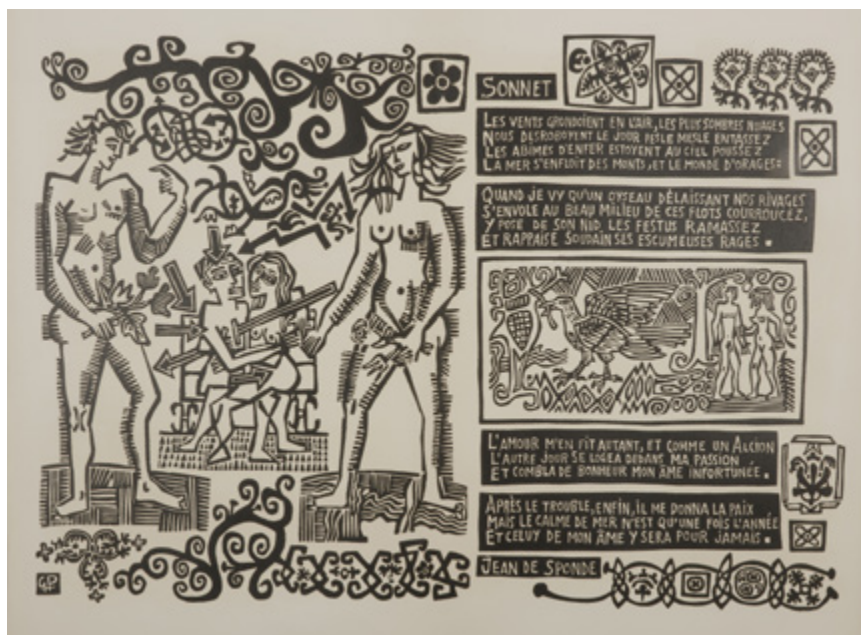 SONNET
LES VENTS GRONDOIENT EN L'AIR, LES PLUS SOMBRES NUAGES
NOUS DESROBOYENT LE JOUR PESLE MESLE ENTASSEZ
LES ABIMES D'ENFER ESTOYENT AU CIEL POUSSEZ
LA MER S'ENFLOIT DES MONTS, ET LE MONDE D'ORAGES:
QUAND JE VY QU'UN OYSEAU DÉLAISSANT NOS RIVAGES
S'ENVOLE AU BEAU MILIEU DE CES FLOTS COURROUCEZ,
Y POSE DE SON NID, LES FESTUS RAMASSEZ
ET RAPPAISE SOUDAIN SES ESCUMEUSES RAGES.
L'AMOUR M'EN FIT AUTANT, ET COMME UN ALCION
L'AUTRE JOUR SE LOGEA DEDANS MA PASSION
ET COMBLA DE BONHEUR MON ÂME INFORTUNÉE.
APRÈS LE TROUBLE, ENFIN, IL ME DONNA LA PAIX
MAIS LE CALME DE MER N'EST QU'UNE FOIS L'ANNÉE
ET CELUY DE MON ÂME Y SERA POUR JAMAIS.
JEAN DE SPONDE